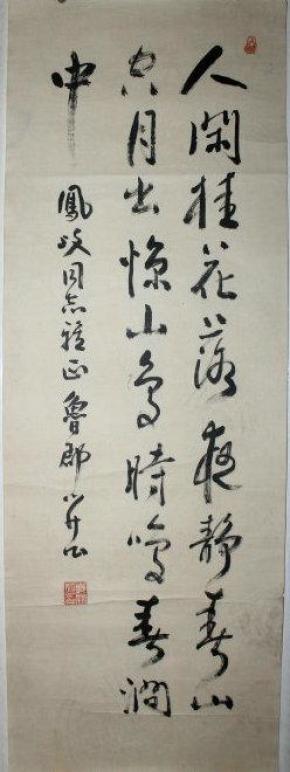 人閑桂花落夜靜春山
空月出惊山鳥時鳴春澗
中
鳳岐同志雅正魯郡